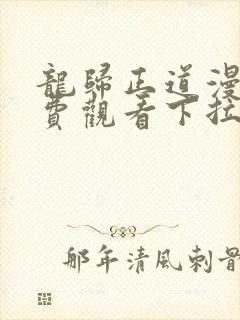 龍歸正道漫
費觀看下拉
那年清風刺骨